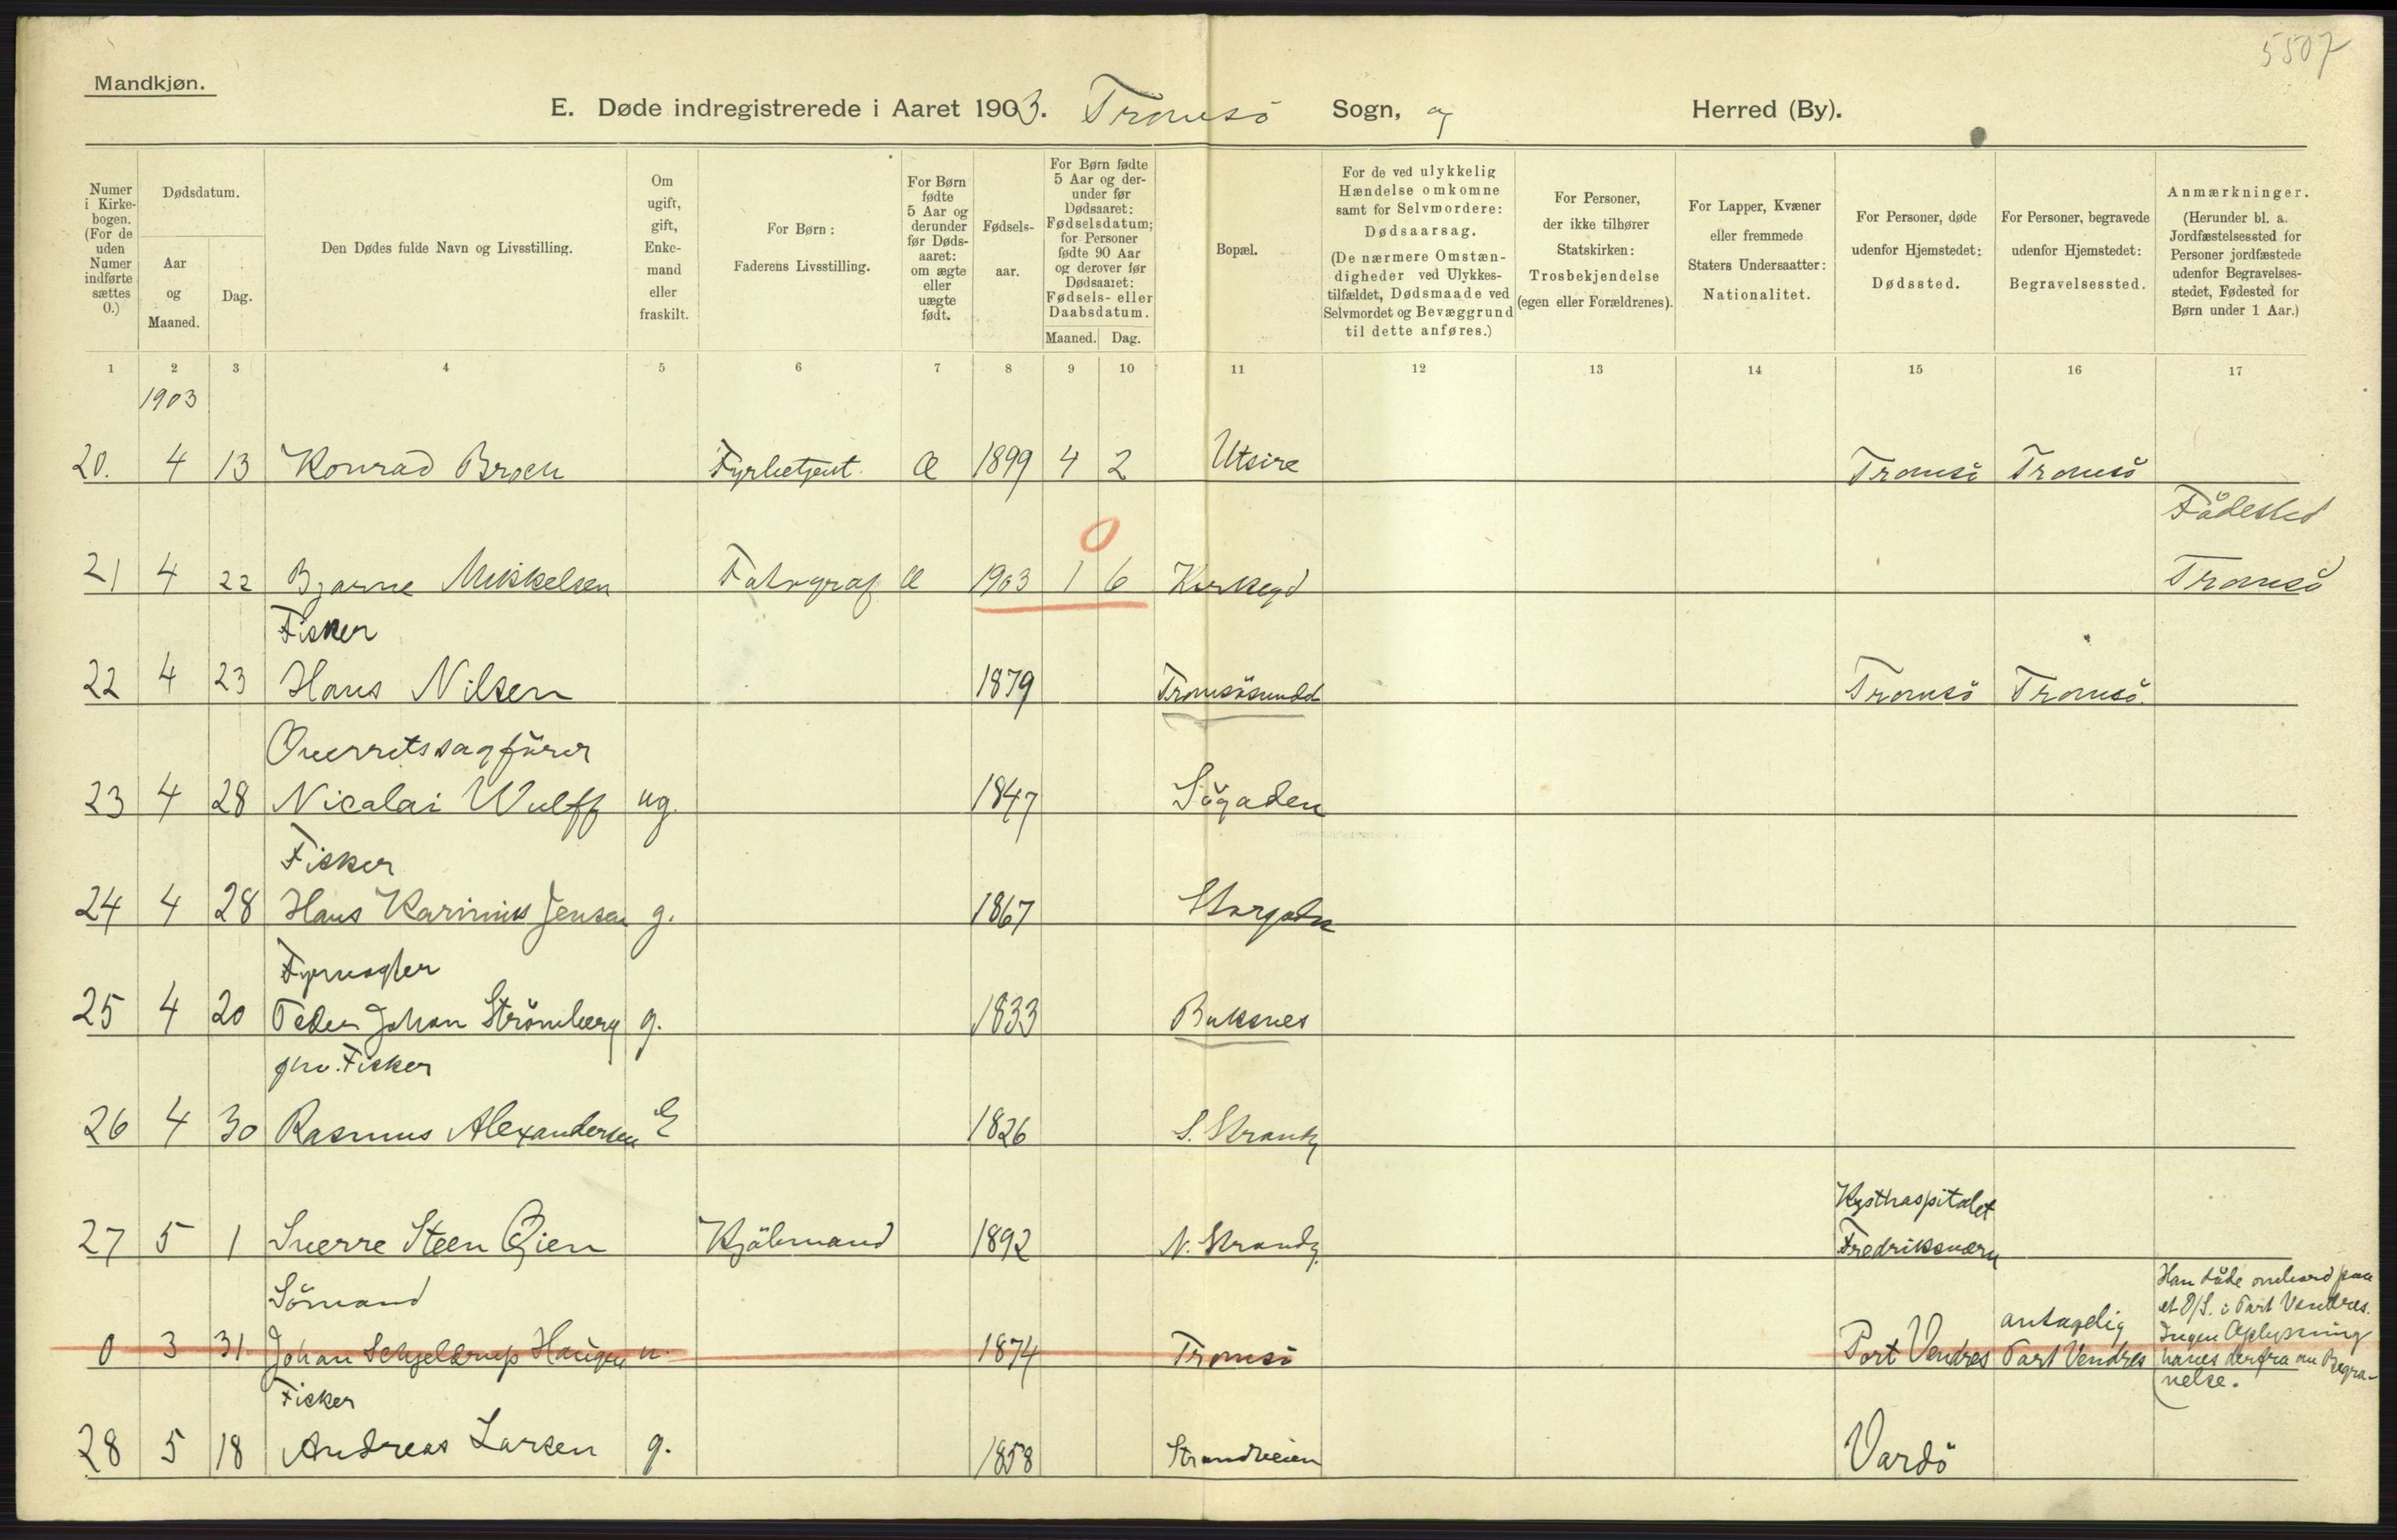 5507
Mandkjøn.
E. Døde indregistrerede i Aaret 1903. Tromsö Sogn, og Herred (By).
Numer i Kirke-bogen. (For de uden Numer indførte sættes 0.)
Dødsdatum.
Aar og Maaned.
Dag.
Den Dødes fulde Navn og Livsstilling.
Om ugift, gift, Enke-mand eller fraskilt.
For Børn: Faderens Livsstilling.
For Børn fødte 5 Aar og derunder før Døds-aaret: om ægte eller uægte født.
Fødsels-aar.
For Børn fødte 5 Aar og der-under før Dødsaaret: Fødselsdatum; for Personer fødte 90 Aar og derover før Dødsaaret: Fødsels- eller Daabsdatum.
Maaned. Dag.
Bopæl.
For de ved ulykkelig Hændelse omkomne samt for Selvmordere: Dødsaarsag. (De nærmere Omstæn-digheder ved Ulykkes-tilfældet, Dødsmaade ved Selvmordet og Bevæggrund til dette anføres.)
For Personer, der ikke tilhører Statskirken: Trosbekjendelse (egen eller Forældrenes).
For Lapper, Kvæner eller fremmede Staters Undersaatter: Nationalitet.
For Personer, døde udenfor Hjemstedet: Dødssted.
For Personer, begravede udenfor Hjemstedet: Begravelsessted.
Anmærkninger. (Herunder bl. a. Jordfæstelsessted for Personer jordfæstede udenfor Begravelses-stedet, Fødested for Børn under 1 Aar.)
1 2 3 4 5 6 7 8 9 10 11 12 13 14 15 16 17
1903
20. 4 13 Konrad Broch Fyrbetjent. Æ 1899 4 2 Utsire Tromsö Tromsö
Födested
0
21 4 22 Bjarne Mikkelsen Fotograf Æ 1903 1 6 Kirkegd Tromsö
Fisker
22 4 23 Hans Nilsen 1879 Tromsösundd Tromsö Tromsö.
Overretssagförer
23 4 28 Nicolai Wulff ug. 1847 Sögaden
Fisker
24 4 28 Hans Karinius Jensen g. 1867 Storgaden
Fyrvogter
25 4 20 Peder Johan Strömberg g. 1833 Buksnes
fhv. Fisker
26 4 30 Rasmus Alexandersen E 1826 S. Strandg
Kysthospitalet
27 5 1 Sverre Steen Øien Kjöbmand 1892 N. Strandg. Fredriksværn
Sömand
Han döde ombord paa
et D/S. i Port Vendres.
antagelig
Ingen Oplysning
0 3 31 Johan Schjeldrup Haugen u. 1874 Tromsö Port Vendres Port Vendres haves derfra om Begra-
nelse.
Fisker
28 5 18 Andreas Larsen g. 1858 Strandveien Vardö